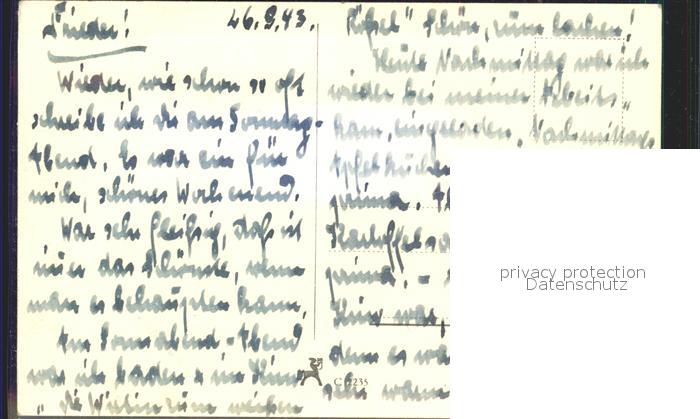 Frieder! 26.9.43.
Wieder, wie schon so oft
schreibe ich dir am Sonntag-
Abend. Es war ein für
mich, schönes Wochenend.
War sehr fleißig, daß ist
immer das Schönste, wenn
man es behaupten kann,
Am Sonnabend-Abend
war ich baden & im Kino
"Die Wirtin zum weißen
Rößel" Schön, zum lachen!
Heute Nachmittag war ich
wieder bei meiner Arbeits-
kam, eingeladen, Nachmittags
Apfelkuchen
prima. A
Kartoffelsa
prima! -
Kino war,
denn es wa
sehr warm
C 1235
privacy protection
Datenschutz